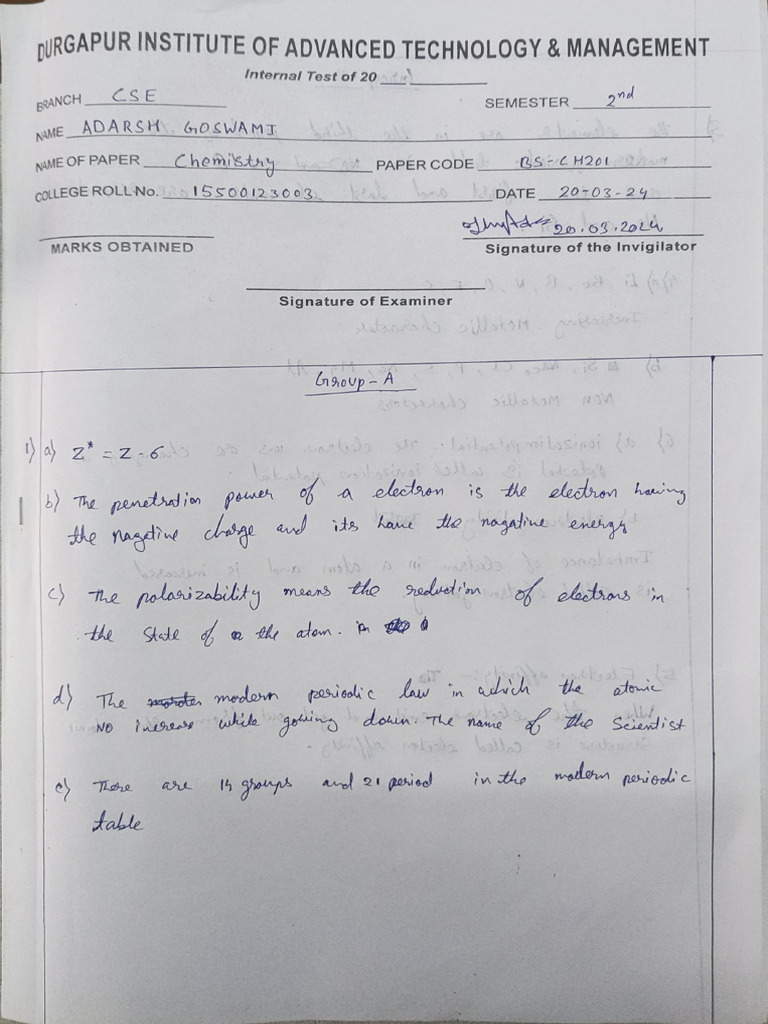 DURGAPUR INSTITUTE OF ADVANCED TECHNOLOGY & MANAGEMENT
Internal Test of 20
BRANCH CSE SEMESTER 2nd
NAME ADARSH GOSWAMI
NAME OF PAPER Chemistry PAPER CODE BS-CH201
COLLEGE ROLL No. 15500123003 DATE 20-03-24
20.03.2024
MARKS OBTAINED Signature of the Invigilator
Signature of Examiner
Group-A
1) a) Z* = Z - 6
b) The penetration power of a electron is the electron having
the nagative charge and its have the nagative energy
c) The polarizability means the reduction of electrons in
the state of the atom.
d) The modern periodic law in which the atomic
NO increase while gowing down. The name of the Scientist
e) There are 14 groups and 21 period in the modern periodic
table